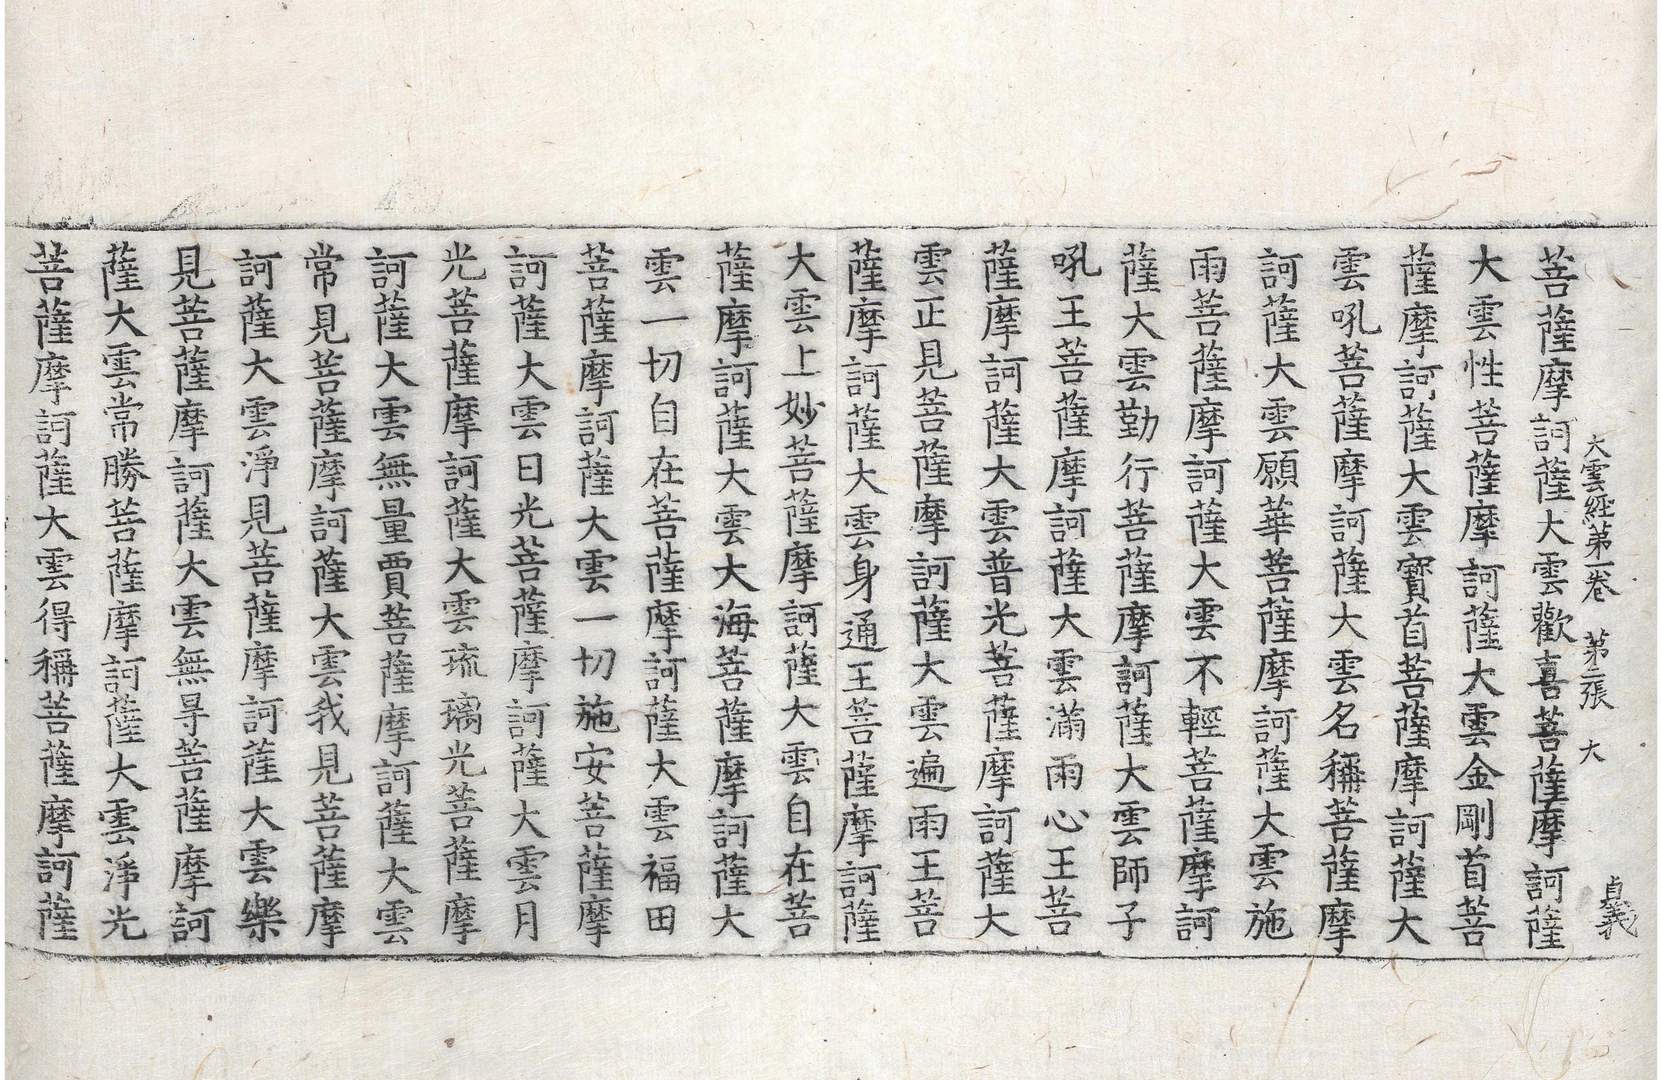 大雲經第一卷　第二張　大　貞義
菩薩摩訶薩大雲歡喜菩薩摩訶薩
大雲性菩薩摩訶薩大雲金剛首菩
薩摩訶薩大雲寶首菩薩摩訶薩大
雲吼菩薩摩訶薩大雲名稱菩薩摩
訶薩大雲願華菩薩摩訶薩大雲施
雨菩薩摩訶薩大雲不輕菩薩摩訶
薩大雲勤行菩薩摩訶薩大雲師子
吼王菩薩摩訶薩大雲滿雨心王菩
薩摩訶薩大雲普光菩薩摩訶薩大
雲正見菩薩摩訶薩大雲遍雨王菩
薩摩訶薩大雲身通王菩薩摩訶薩
大雲上妙菩薩摩訶薩大雲自在菩
薩摩訶薩大雲大海菩薩摩訶薩大
雲一切自在菩薩摩訶薩大雲福田
菩薩摩訶薩大雲一切施安菩薩摩
訶薩大雲日光菩薩摩訶薩大雲月
光菩薩摩訶薩大雲琉璃光菩薩摩
訶薩大雲無量賈菩薩摩訶薩大雲
常見菩薩摩訶薩大雲我見菩薩摩
訶薩大雲淨見菩薩摩訶薩大雲樂
見菩薩摩訶薩大雲無㝵菩薩摩訶
薩大雲常勝菩薩摩訶薩大雲淨光
菩薩摩訶薩大雲得稱菩薩摩訶薩